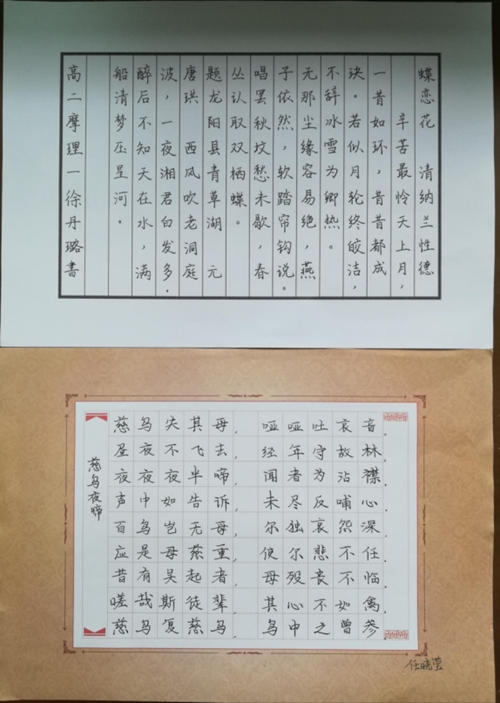 蝶恋花 清纳兰性德
辛苦最怜天上月，
一昔如环，昔昔都成
玦。若似月轮终皎洁，
不辞冰雪为卿热。
无那尘缘容易绝，燕
子依然，软踏帘钩说。
唱罢秋坟愁未歇，春
丛认取双栖蝶。
题龙阳县青草湖 元
唐珙 西风吹老洞庭
波，一夜湘君白发多。
醉后不知天在水，满
船清梦压星河。
高二摩理一徐丹璐書
慈乌夜啼
慈乌失其母，哑哑吐哀音。
昼夜不飞去，经年守故林。
夜夜夜半啼，闻者为沾襟。
声中如告诉，未尽反哺心。
百乌岂无母，尔独哀怨深。
应是母慈重，使尔悲不任。
昔有吴起者，母殁丧不临。
嗟哉斯徒辈，其心不如禽。
慈乌复慈乌，乌中之曾参。
任晓莹